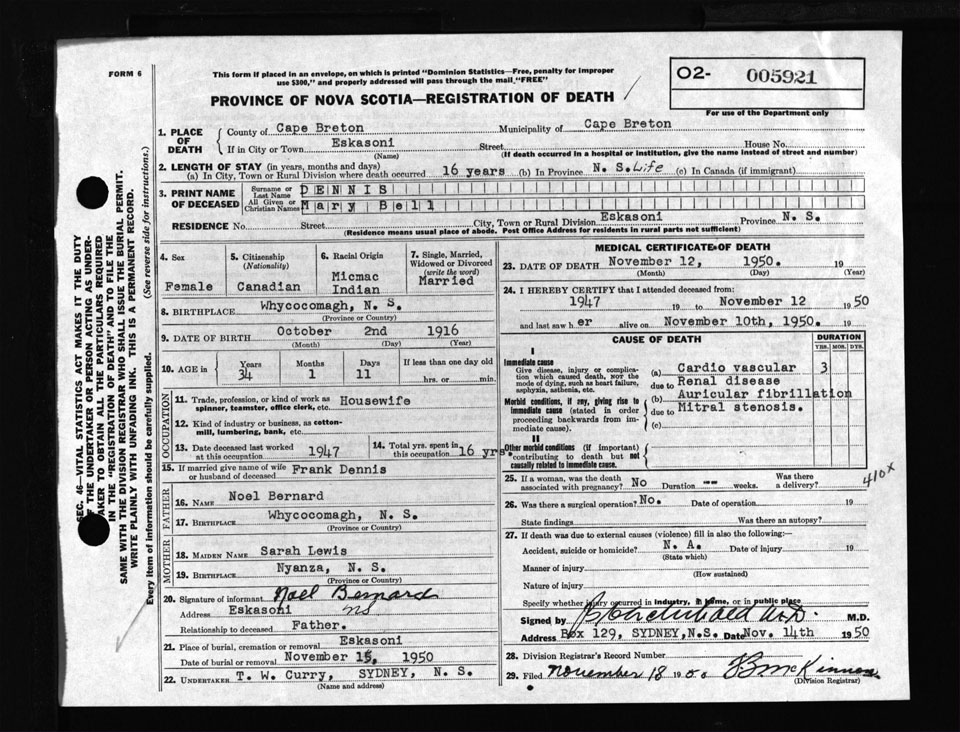 FORM 6
This form if placed in an envelope, on which is printed "Dominion Statistics—Free, penalty for improper
use $300," and properly addressed will pass through the mail "FREE"
PROVINCE OF NOVA SCOTIA—REGISTRATION OF DEATH /
O2- 005921
For use of the Department only
SEC. 46—VITAL STATISTICS ACT MAKES IT THE DUTY
OF THE UNDERTAKER OR PERSON ACTING AS UNDER-
TAKER TO OBTAIN ALL THE PARTICULARS REQUIRED
IN THE "REGISTRATION OF DEATH" AND TO FILE THE
SAME WITH THE DIVISION REGISTRAR WHO SHALL ISSUE THE BURIAL PERMIT.
WRITE PLAINLY WITH UNFADING INK. THIS IS A PERMANENT RECORD.
Every item of information should be carefully supplied. (See reverse side for instructions.)
1. PLACE OF DEATH
County of Cape Breton Municipality of Cape Breton
If in City or Town Eskasoni Street House No.
(Name) (If death occurred in a hospital or institution, give the name instead of street and number)
2. LENGTH OF STAY (in years, months and days)
(a) In City, Town or Rural Division where death occurred 16 years (b) In Province N. S. Life (c) In Canada (if immigrant)
3. PRINT NAME OF DECEASED
Surname or Last Name DENNIS
All Given or Christian Names Mary Bell
RESIDENCE No. Street City, Town or Rural Division Eskasoni Province N. S.
(Residence means usual place of abode. Post Office Address for residents in rural parts not sufficient)
4. Sex
Female
5. Citizenship
(Nationality)
Canadian
6. Racial Origin
Micmac
Indian
7. Single, Married,
Widowed or Divorced
(write the word)
Married
8. BIRTHPLACE Whycocomagh, N. S.
(Province or Country)
9. DATE OF BIRTH October 2nd 1916
(Month) (Day) (Year)
10. AGE in Years Months Days If less than one day old
34 1 11 hrs. or min.
OCCUPATION
11. Trade, profession, or kind of work as Housewife
spinner, teamster, office clerk, etc.
12. Kind of industry or business, as cotton-
mill, lumbering, bank, etc.
13. Date deceased last worked
at this occupation 1947
14. Total yrs. spent in
this occupation 16 yrs.
15. If married give name of wife
or husband of deceased Frank Dennis
FATHER
16. NAME Noel Bernard
17. BIRTHPLACE Whycocomagh, N. S.
(Province or Country)
MOTHER
18. MAIDEN NAME Sarah Lewis
19. BIRTHPLACE Nyanza, N. S.
(Province or Country)
20. Signature of informant Noel Bernard
Address Eskasoni NS
Relationship to deceased Father.
21. Place of burial, cremation or removal Eskasoni
Date of burial or removal November 15, 1950
22. UNDERTAKER T. W. Curry, SYDNEY, N. S.
(Name and address)
MEDICAL CERTIFICATE OF DEATH
23. DATE OF DEATH November 12, 1950. 19
(Month) (Day) (Year)
24. I HEREBY CERTIFY that I attended deceased from:
1947 19 to November 12 1950
and last saw h er alive on November 10th, 1950. 19
CAUSE OF DEATH
DURATION
YRS. MOS. DYS.
I
Immediate cause
Give disease, injury or complica-
tion which caused death, NOT the
mode of dying, such as heart failure,
asphyxia, asthenia, etc.
Morbid conditions, if any, giving rise to
immediate cause (stated in order
proceeding backwards from im-
mediate cause).
II
Other morbid conditions (if important)
contributing to death but not
causally related to immediate cause.
(a) Cardio vascular 3
due to Renal disease
(b) Auricular fibrillation
due to Mitral stenosis.
(c)
410x
25. If a woman, was the death
associated with pregnancy? No Duration -- weeks. Was there
a delivery?
26. Was there a surgical operation? No. Date of operation 19
State findings Was there an autopsy?
27. If death was due to external causes (violence) fill in also the following:—
Accident, suicide or homicide? N. A. Date of injury 19
(State which)
Manner of injury
(How sustained)
Nature of injury
Specify whether injury occurred in industry, in home, or in public place
Signed by M.D.
Address Box 129, SYDNEY, N.S. Date Nov. 14th 1950
28. Division Registrar's Record Number
29. Filed November 18 1950 McKinnon
(Division Registrar)